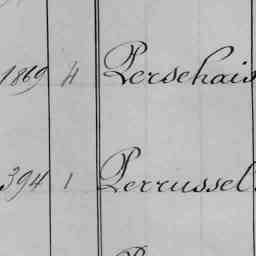 1869 4 Persehais
394 1 Perrussel